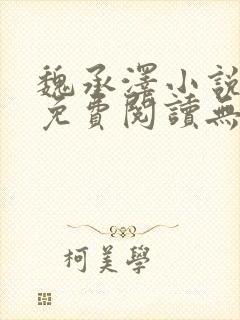 魏承澤小說
免費閱讀無
柯美學